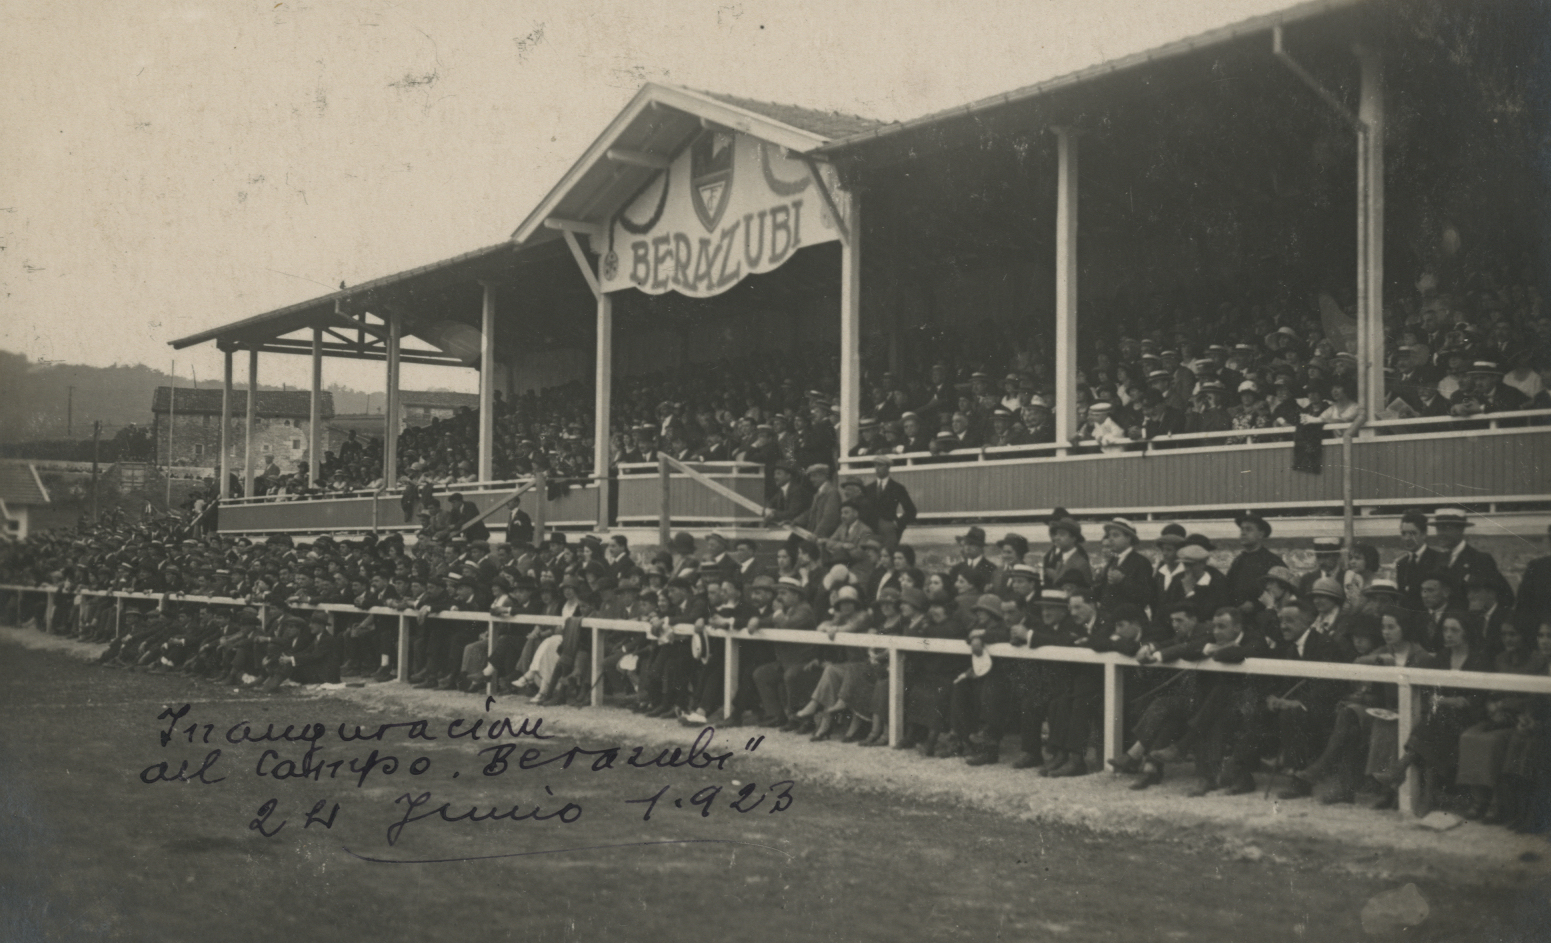 BERAZUBI
Inauguración
del Campo "Berazubi"
24 Junio 1.923